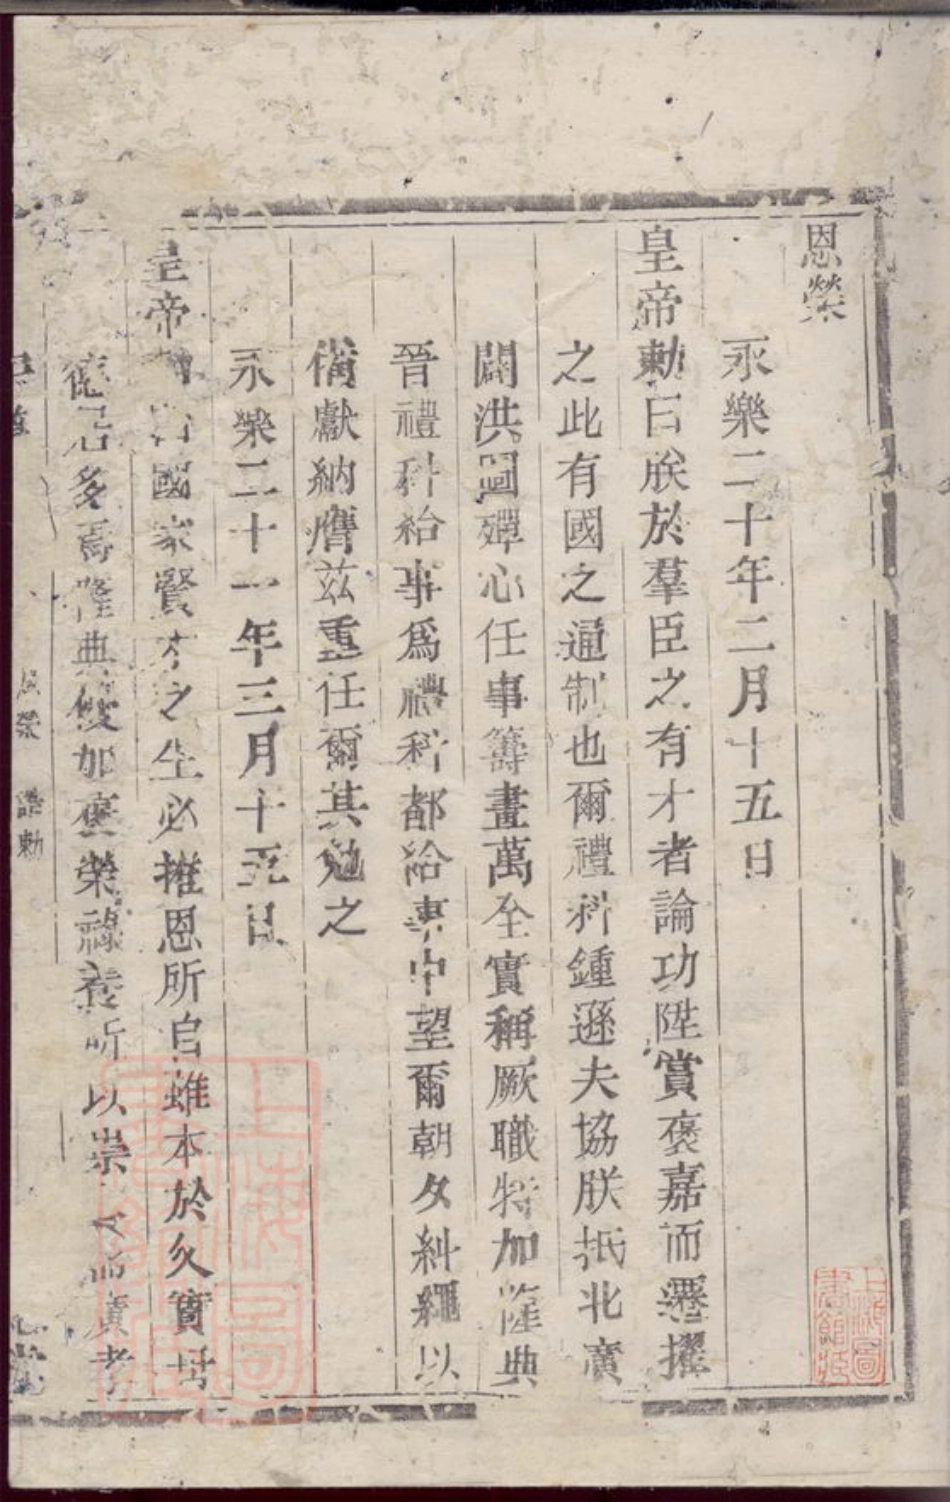 恩榮
永樂二十年二月十五日
皇帝勅曰朕於羣臣之有才者論功陞賞褒嘉而遷擢
之此有國之通制也爾禮科鍾遜夫協朕抵北廣
闢洪圖殫心任事籌畫萬全實稱厥職特加隆典
晉禮科給事爲禮科都給事中望爾朝夕糾繩以
備獻納膺兹重任爾其勉之
永樂二十一年三月十五日
皇帝國家賢才之生必推恩所自雖本於父實
德居多焉隆典優加褒榮祿養所以崇廣孝
恩榮 誥勅
上海圖書館藏